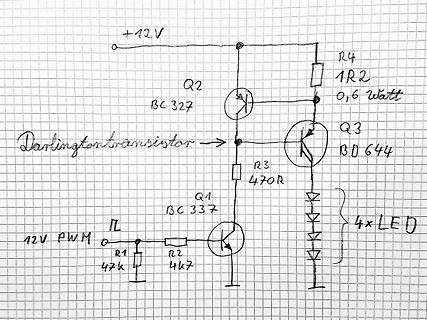 +12V
R4
1R2
0,6 Watt
Q2
BC 327
Q3
BD 644
Darlingtontransistor
R3
470R
Q1
BC 337
4xLED
12V PWM
R1
47k
R2
4k7